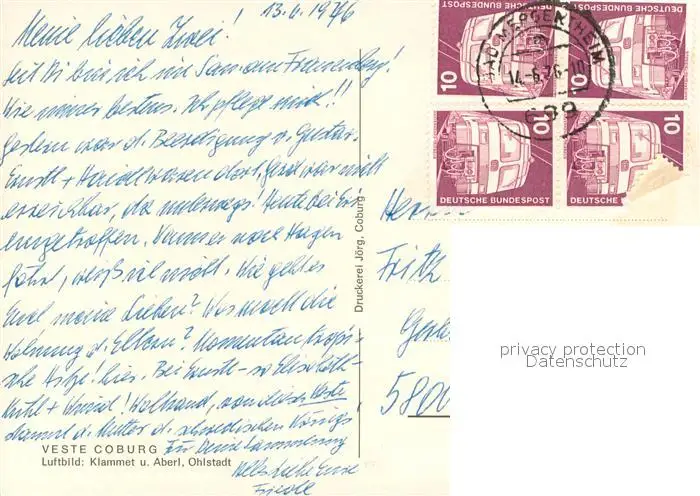 13.6.1976
Meine lieben Zwei!
Seit Di bin ich im Sanam Frauenberg!
Wie immer bestens. Ich pflege mich!!
Gestern war d. Beerdigung v. Gustav.
Ernstl + waren dort, Gerd war nicht
erreichbar, da unterwegs! Heute bei Eri
eingetroffen. Wann er nach Hagen
fährt, weiß ich nicht. Wie geht es
Euch meine Lieben? Was macht die
Wohnung d. Eltern? Momentan tropi-
sche Hitze! hier. Bei Ernstl - so Elisabeth -
! Wolltrand, von dieser Veste
stammt d. Mutter d. schwedischen Königs!
Für Deine Sammlung
Alles Liebe Eure
Friedl
VESTE COBURG
Luftbild: Klammet u. Aberl, Ohlstadt
Druckerei Jörg, Coburg
DEUTSCHE BUNDESPOST
10
DEUTSCHE BUNDESPOST
10
DEUTSCHE BUNDESPOST
10
DEUTSCHE
10
BAD MERGENTHEIM
14.-6.76-10
699
Herrn
Fritz
5800
privacy protection
Datenschutz